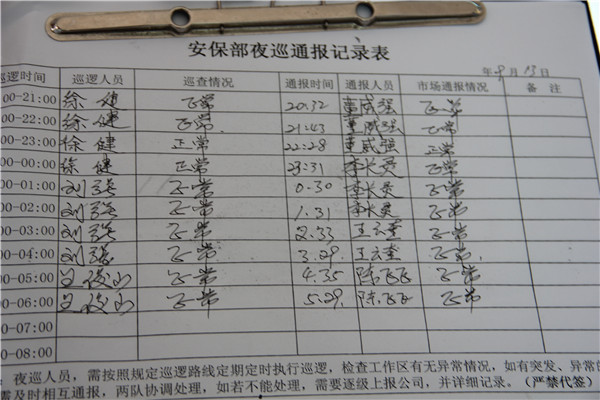 安保部夜巡通报记录表
年9月13日
巡逻时间 巡逻人员 巡查情况 通报时间 通报人员 市场通报情况 备 注
00-21:00 徐健 正常 20:32 董威强 正常
00-22:00 徐健 正常 21:43 董威强 正常
00-23:00 徐健 正常 22:28 董威强 正常
00-00:00 徐健 正常 23:31 李长英 正常
00-01:00 刘强 正常 0.30 李长英 正常
00-02:00 刘强 正常 1.31 李长英 正常
00-03:00 刘强 正常 2.33 王云奎 正常
00-04:00 刘强 正常 3.29 王云奎 正常
00-05:00 俊山 正常 4.35 陈飞飞 正常
00-06:00 俊山 正常 5.29 陈飞飞 正常
00-07:00
00-08:00
：夜巡人员，需按照规定巡逻路线定期定时执行巡逻，检查工作区有无异常情况，如有突发、异常的
需及时相互通报，两队协调处理，如若不能处理，需要逐级上报公司，并详细记录。（严禁代签）